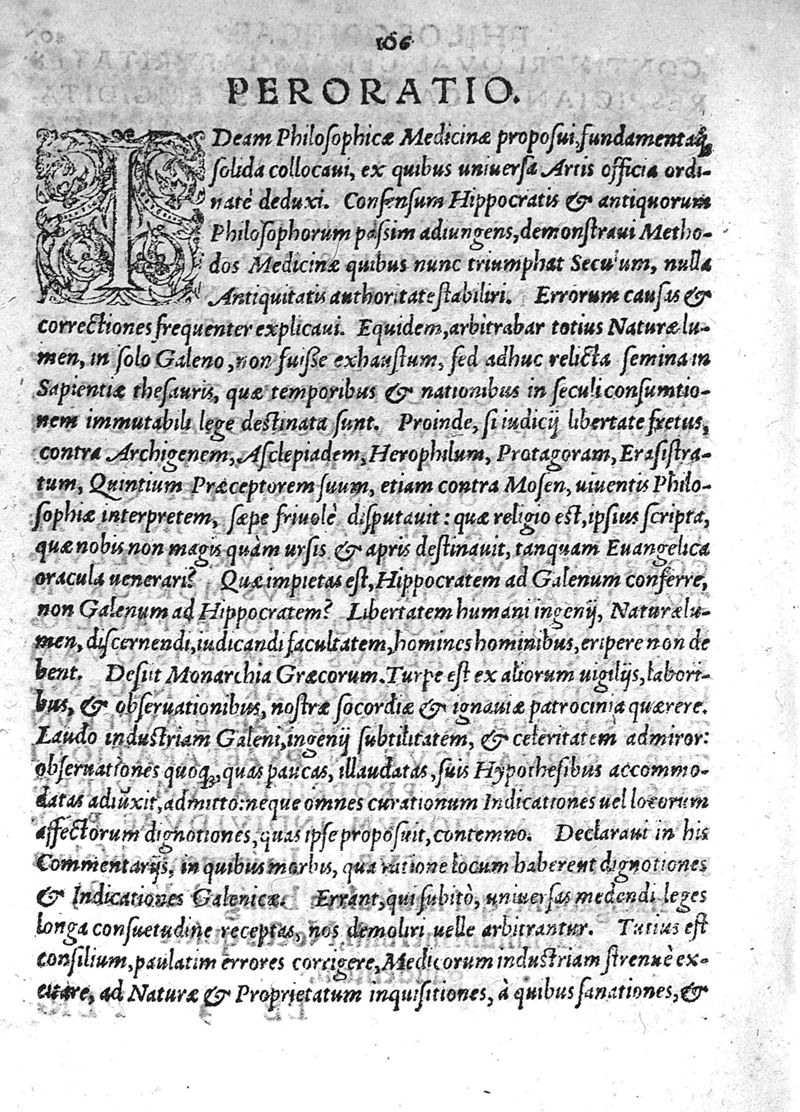 106
PERORATIO.
IDeam Philosophicæ Medicinæ proposui, fundamentaq́;
solida collocaui, ex quibus uniuersa Artis officia ordi-
natè deduxi. Consensum Hippocratis & antiquorum
Philosophorum passim adiungens, demonstraui Metho-
dos Medicinæ quibus nunc triumphat Seculum, nulla
Antiquitatis authoritate stabiliri. Errorum causas &
correctiones frequenter explicaui. Equidem, arbitrabar totius Naturæ lu-
men, in solo Galeno, non fuisse exhaustum, sed adhuc relicta semina in
Sapientiæ thesauris, quæ temporibus & nationibus in seculi consumtio-
nem immutabili lege destinata sunt. Proinde, si iudicij libertate fretus,
contra Archigenem, Asclepiadem, Herophilum, Protagoram, Erasistra-
tum, Quintium Præceptorem suum, etiam contra Mosen, uiuentis Philo-
sophiæ interpretem, sæpe friuolè disputauit: quæ religio est, ipsius scripta,
quæ nobis non magis quàm ursis & apris destinauit, tanquam Euangelica
oracula uenerari? Quæ impietas est, Hippocratem ad Galenum conferre,
non Galenum ad Hippocratem? Libertatem humani ingenij, Naturæ lu-
men, discernendi, iudicandi facultatem, homines hominibus, eripere non de
bent. Desijt Monarchia Græcorum. Turpe est ex aliorum uigilijs, labori-
bus, & obseruationibus, nostræ socordiæ & ignauiæ patrocinia quærere.
Laudo industriam Galeni, ingenij subtilitatem, & celeritatem admiror:
obseruationes quoq;, quas paucas, illaudatas, suis Hypothesibus accommo-
datas adiuxit, admitto: neque omnes curationum Indicationes uel locorum
affectorum dignotiones, quas ipse proposuit, contemno. Declaraui in his
Commentarijs, in quibus morbis, qua ratione locum haberent dignotiones
& Indicationes Galenicæ. Errant, qui subitò, uniuersas medendi leges
longa consuetudine receptas, nos demoliri uelle arbitrantur. Tutius est
consilium, paulatim errores corrigere, Medicorum industriam strenuè ex-
citare, ad Naturæ & Proprietatum inquisitiones, à quibus sanationes, &